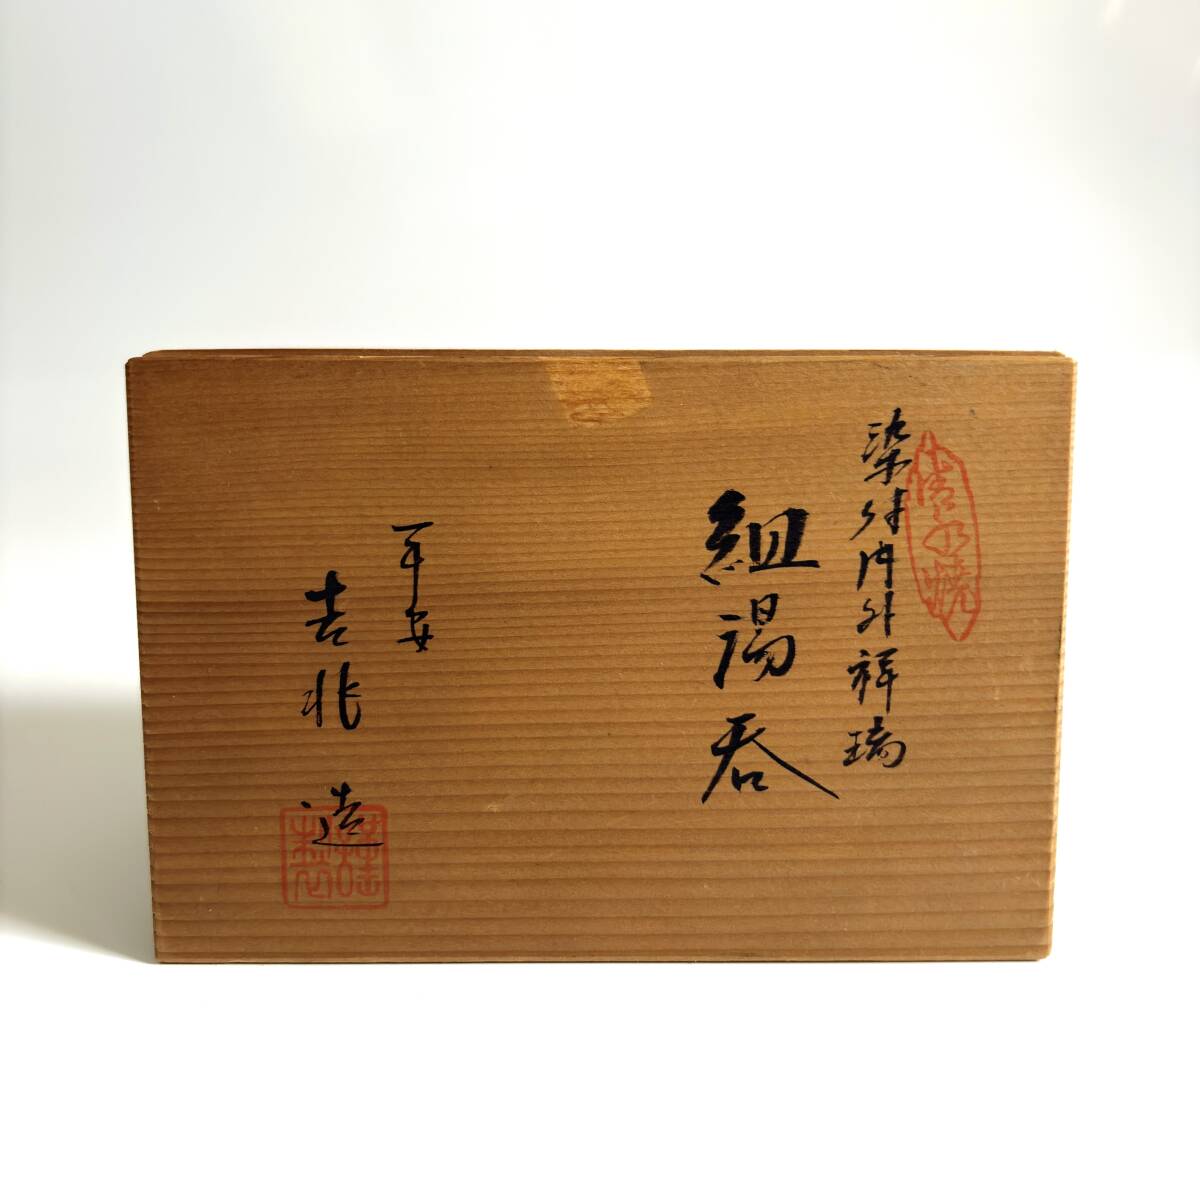 清水焼
染付内外祥瑞
組湯呑
平安
吉兆
造